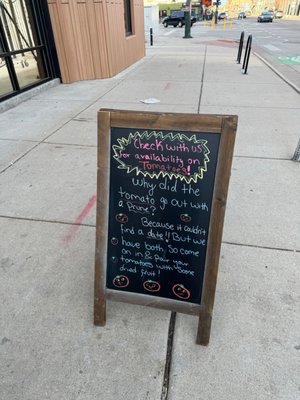 Check with us
for availability on
Tomatoes!
Why did the
tomato go out with
a Prune?
Because it couldn't
find a date!! But we
have both. So come
on in & pair your
tomatoes with some
dried fruit!